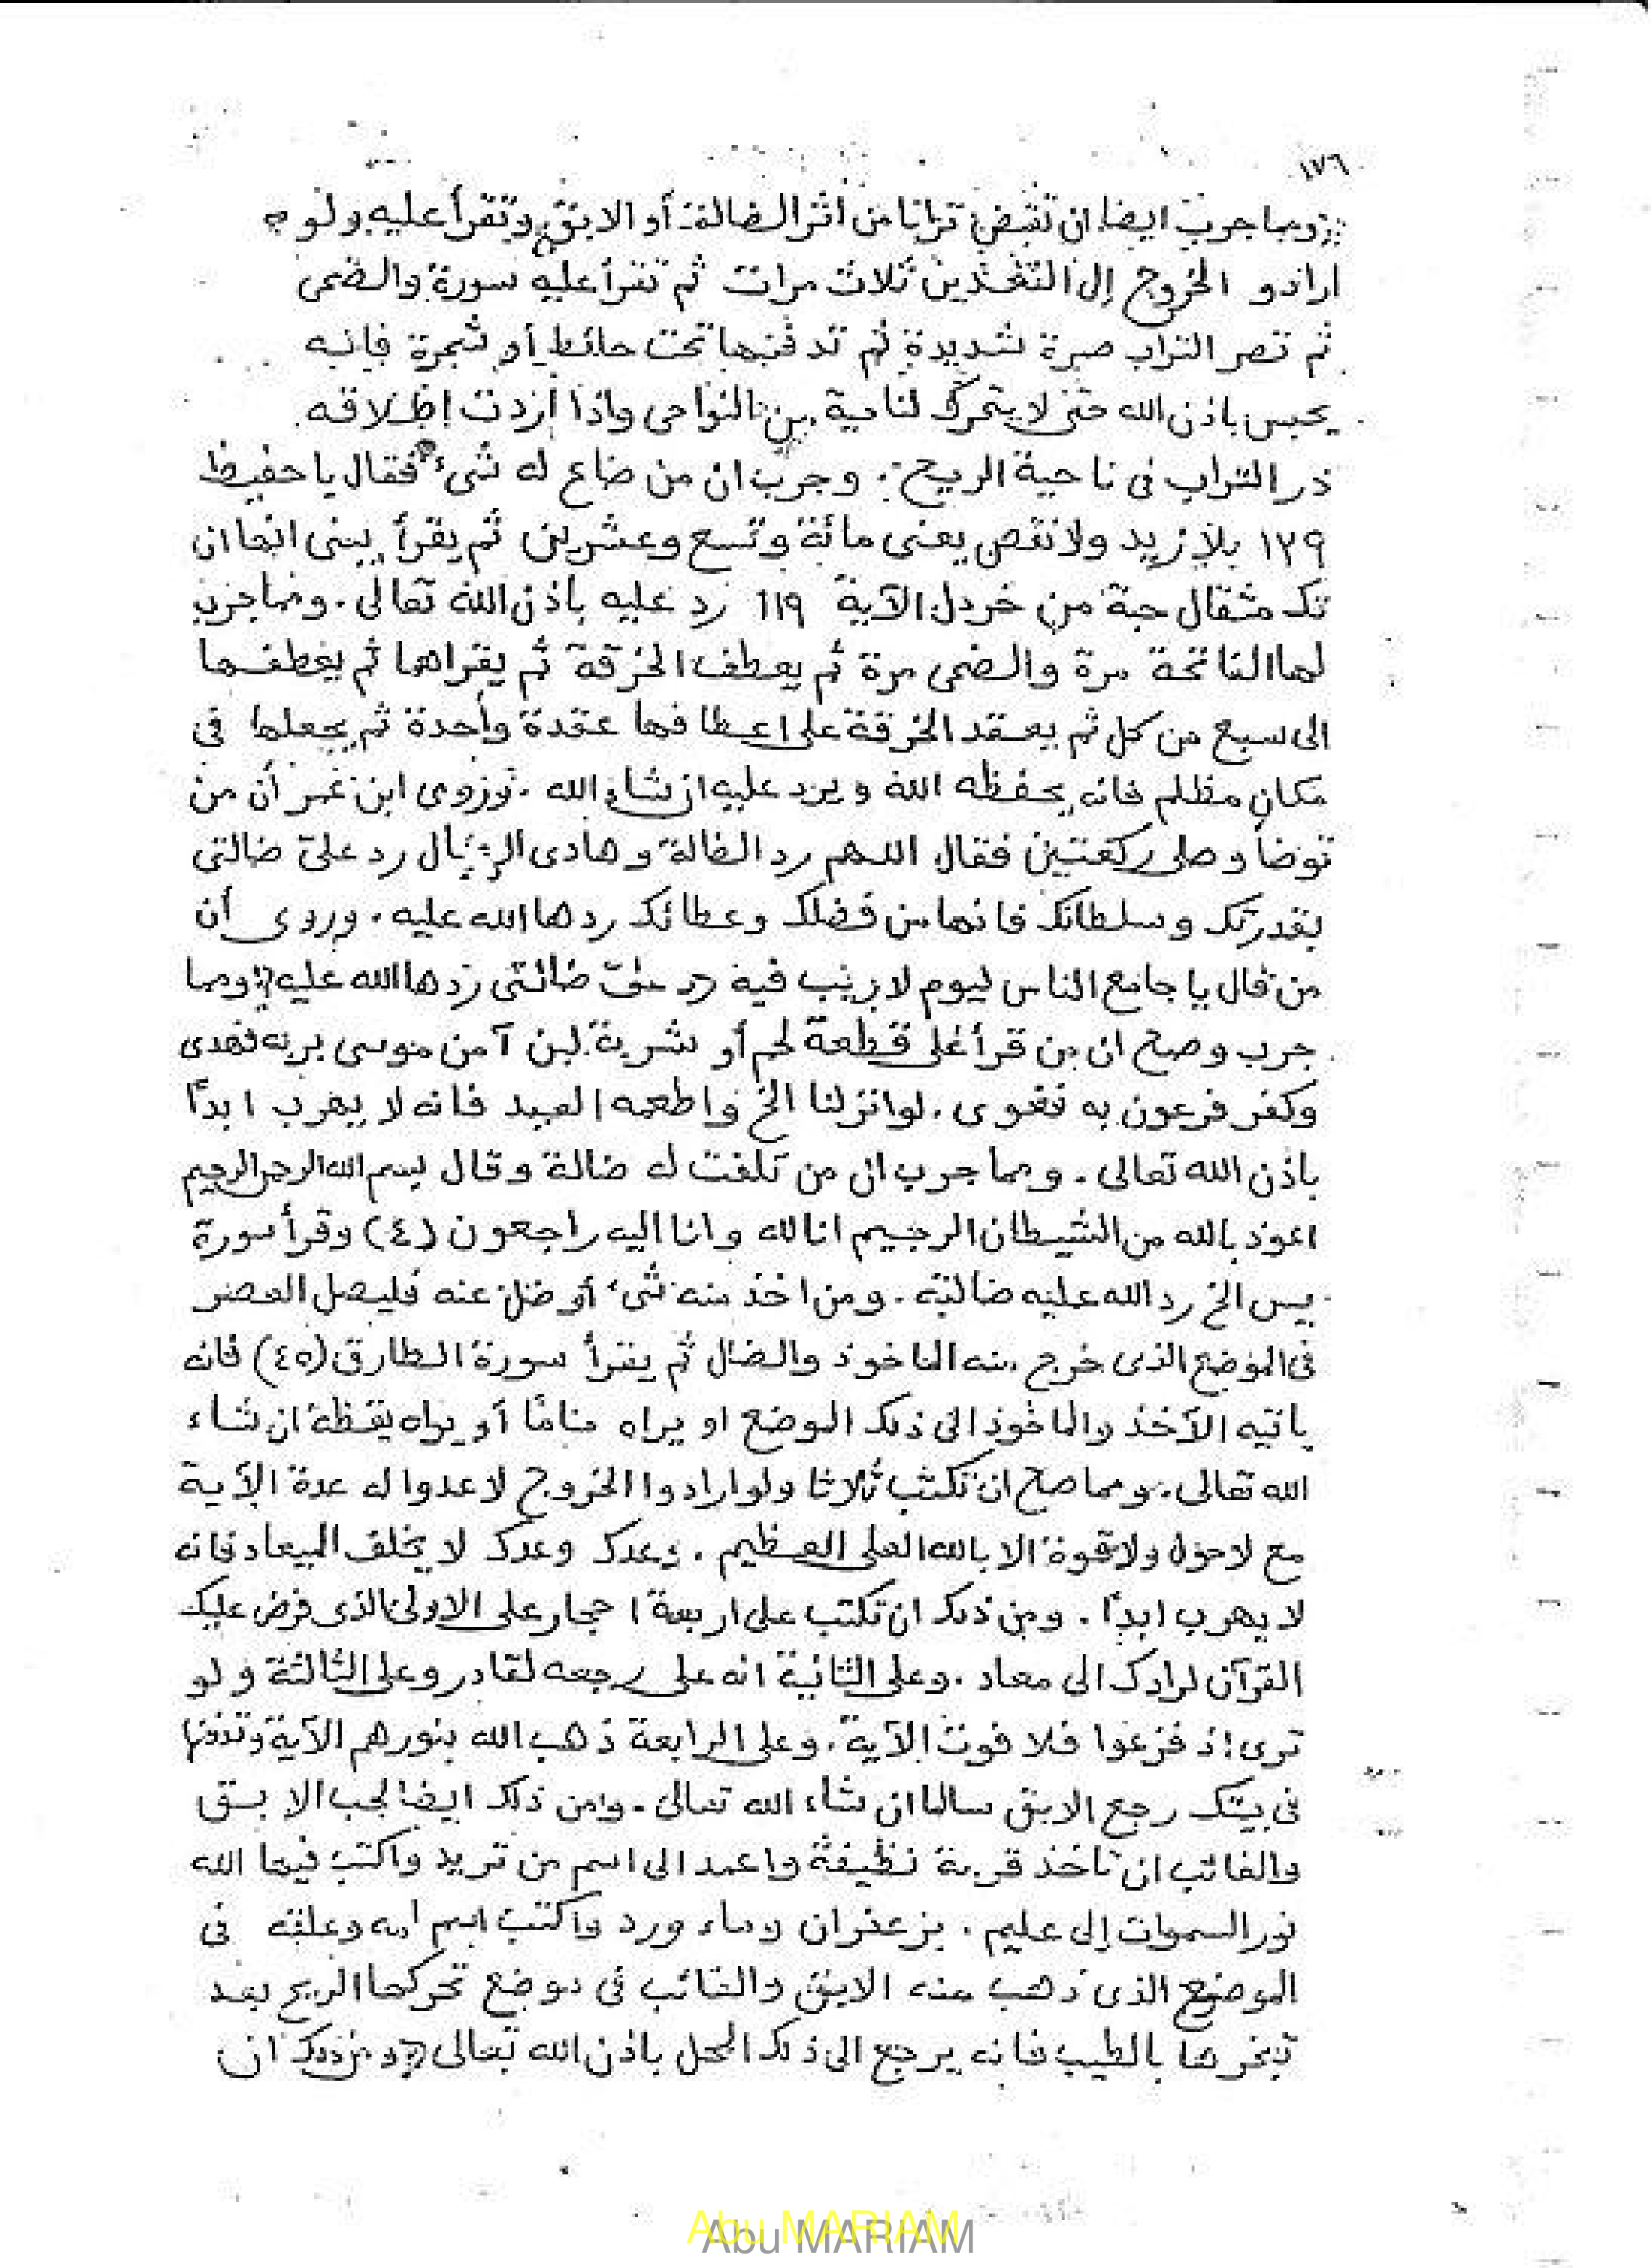 ١٧٦
ومما جرب ايضا ان تقبض ترابا من اثر الضالة أو الابق وتقرأ عليه ولو
ارادو الخروج إلى القعدين ثلاث مرات ثم تقرأ عليه سورة والضحى
ثم تصر التراب صرة شديدة ثم تدفنها تحت حائط أو شجرة فإنه
يحبس باذن الله حتى لا يتحرك لناحية من النواحى واذا أردت إطلاقه
ذر التراب فى ناحية الريح. وجرب ان من ضاع له شىء فقال يا حفيظ
١٢٩ بلا زيد ولا نقص يعنى مائة وتسع وعشرين ثم يقرأ يبنى انها ان
تك مثقال حبة من خردل الآية ١١٩ رد عليه باذن الله تعالى. ومما جرب
لها الفاتحة مرة والضحى مرة ثم يعطف الخرقة ثم يقراها ثم يعطفها
الى سبع من كل ثم يعقد الخرقة على اعطافها عقدة واحدة ثم يجعلها فى
مكان مظلم فانه يحفظه الله ويرد عليه ان شاء الله. وروى ابن عمر أن من
توضأ وصلى ركعتين فقال اللهم رد الضالة وهادى رد علىّ ضالتى
بقدرتك وسلطانك فانها من فضلك وعطائك ردها الله عليه. وروى أن
من قال يا جامع الناس ليوم لا ريب فيه رد علىّ ضالتى ردها الله عليه ومما
جرب وصح ان من قرأ على قطعة لحم أو شربة لبن آمن موسى بربه فهدى
وكفر فرعون به فغوى. لو انزلنا الخ واطعمه العبد فانه لا يهرب ابدًا
باذن الله تعالى. ومما جرب ان من تلفت له ضالة وقال بسم الله الرحمن الرحيم
اعوذ بالله من الشيطان الرجيم انا لله وانا اليه راجعون (٤) وقرأ سورة
يس الخ رد الله عليه ضالته. ومن اخذ منه شىء أو ضل عنه فليصل العصر
فى الموضع الذى خرج منه الماخوذ والضال ثم يقرأ سورة الطارق (٤٥) فانه
ياتيه الآخذ والماخوذ الى ذلك الموضع او يراه منامًا أو يراه يقظة ان شاء
الله تعالى. ومما صح ان تكتب ثلاثا ولو ارادوا الخروج لاعدوا له عدة الآية
مع لا حول ولا قوة الا بالله العلى العظيم. وعدك وعدك لا يخلف الميعاد فانه
لا يهرب ابدًا. ومن ذلك ان تكتب على اربعة احجار على الاولى الذى فرض عليك
القرآن لرادك الى معاد. وعلى الثانية انه على رجعه لقادر وعلى الثالثة ولو
ترى إذ فزعوا فلا فوت الآية. وعلى الرابعة ذهب الله بنورهم الآية وتدفنها
فى بيتك رجع الابق سالما ان شاء الله تعالى. ومن ذلك ايضا لجب الابق
والغائب ان تأخذ قربة نظيفة واعمد الى اسم من تريد واكتب فيها الله
نور السموات إلى عليم. بزعفران وماء ورد واكتب اسم امه وعلقه فى
الموضع الذى ذهب منه الابق والغائب فى موضع تحركها الريح بعد
تبخرها بالطيب فانه يرجع الى ذلك المحل باذن الله تعالى ومن ذلك ان
Abu MARIAM
Abu MARIAM